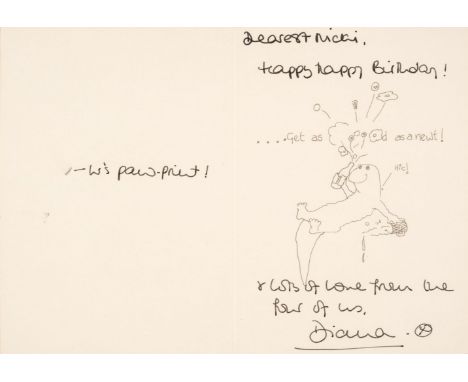 Dearest Nicki,
Happy happy Birthday!
....Get as old as a newt!
Hic!
- W's paw-print!
& lots of love from the
four of us,
Diana. x